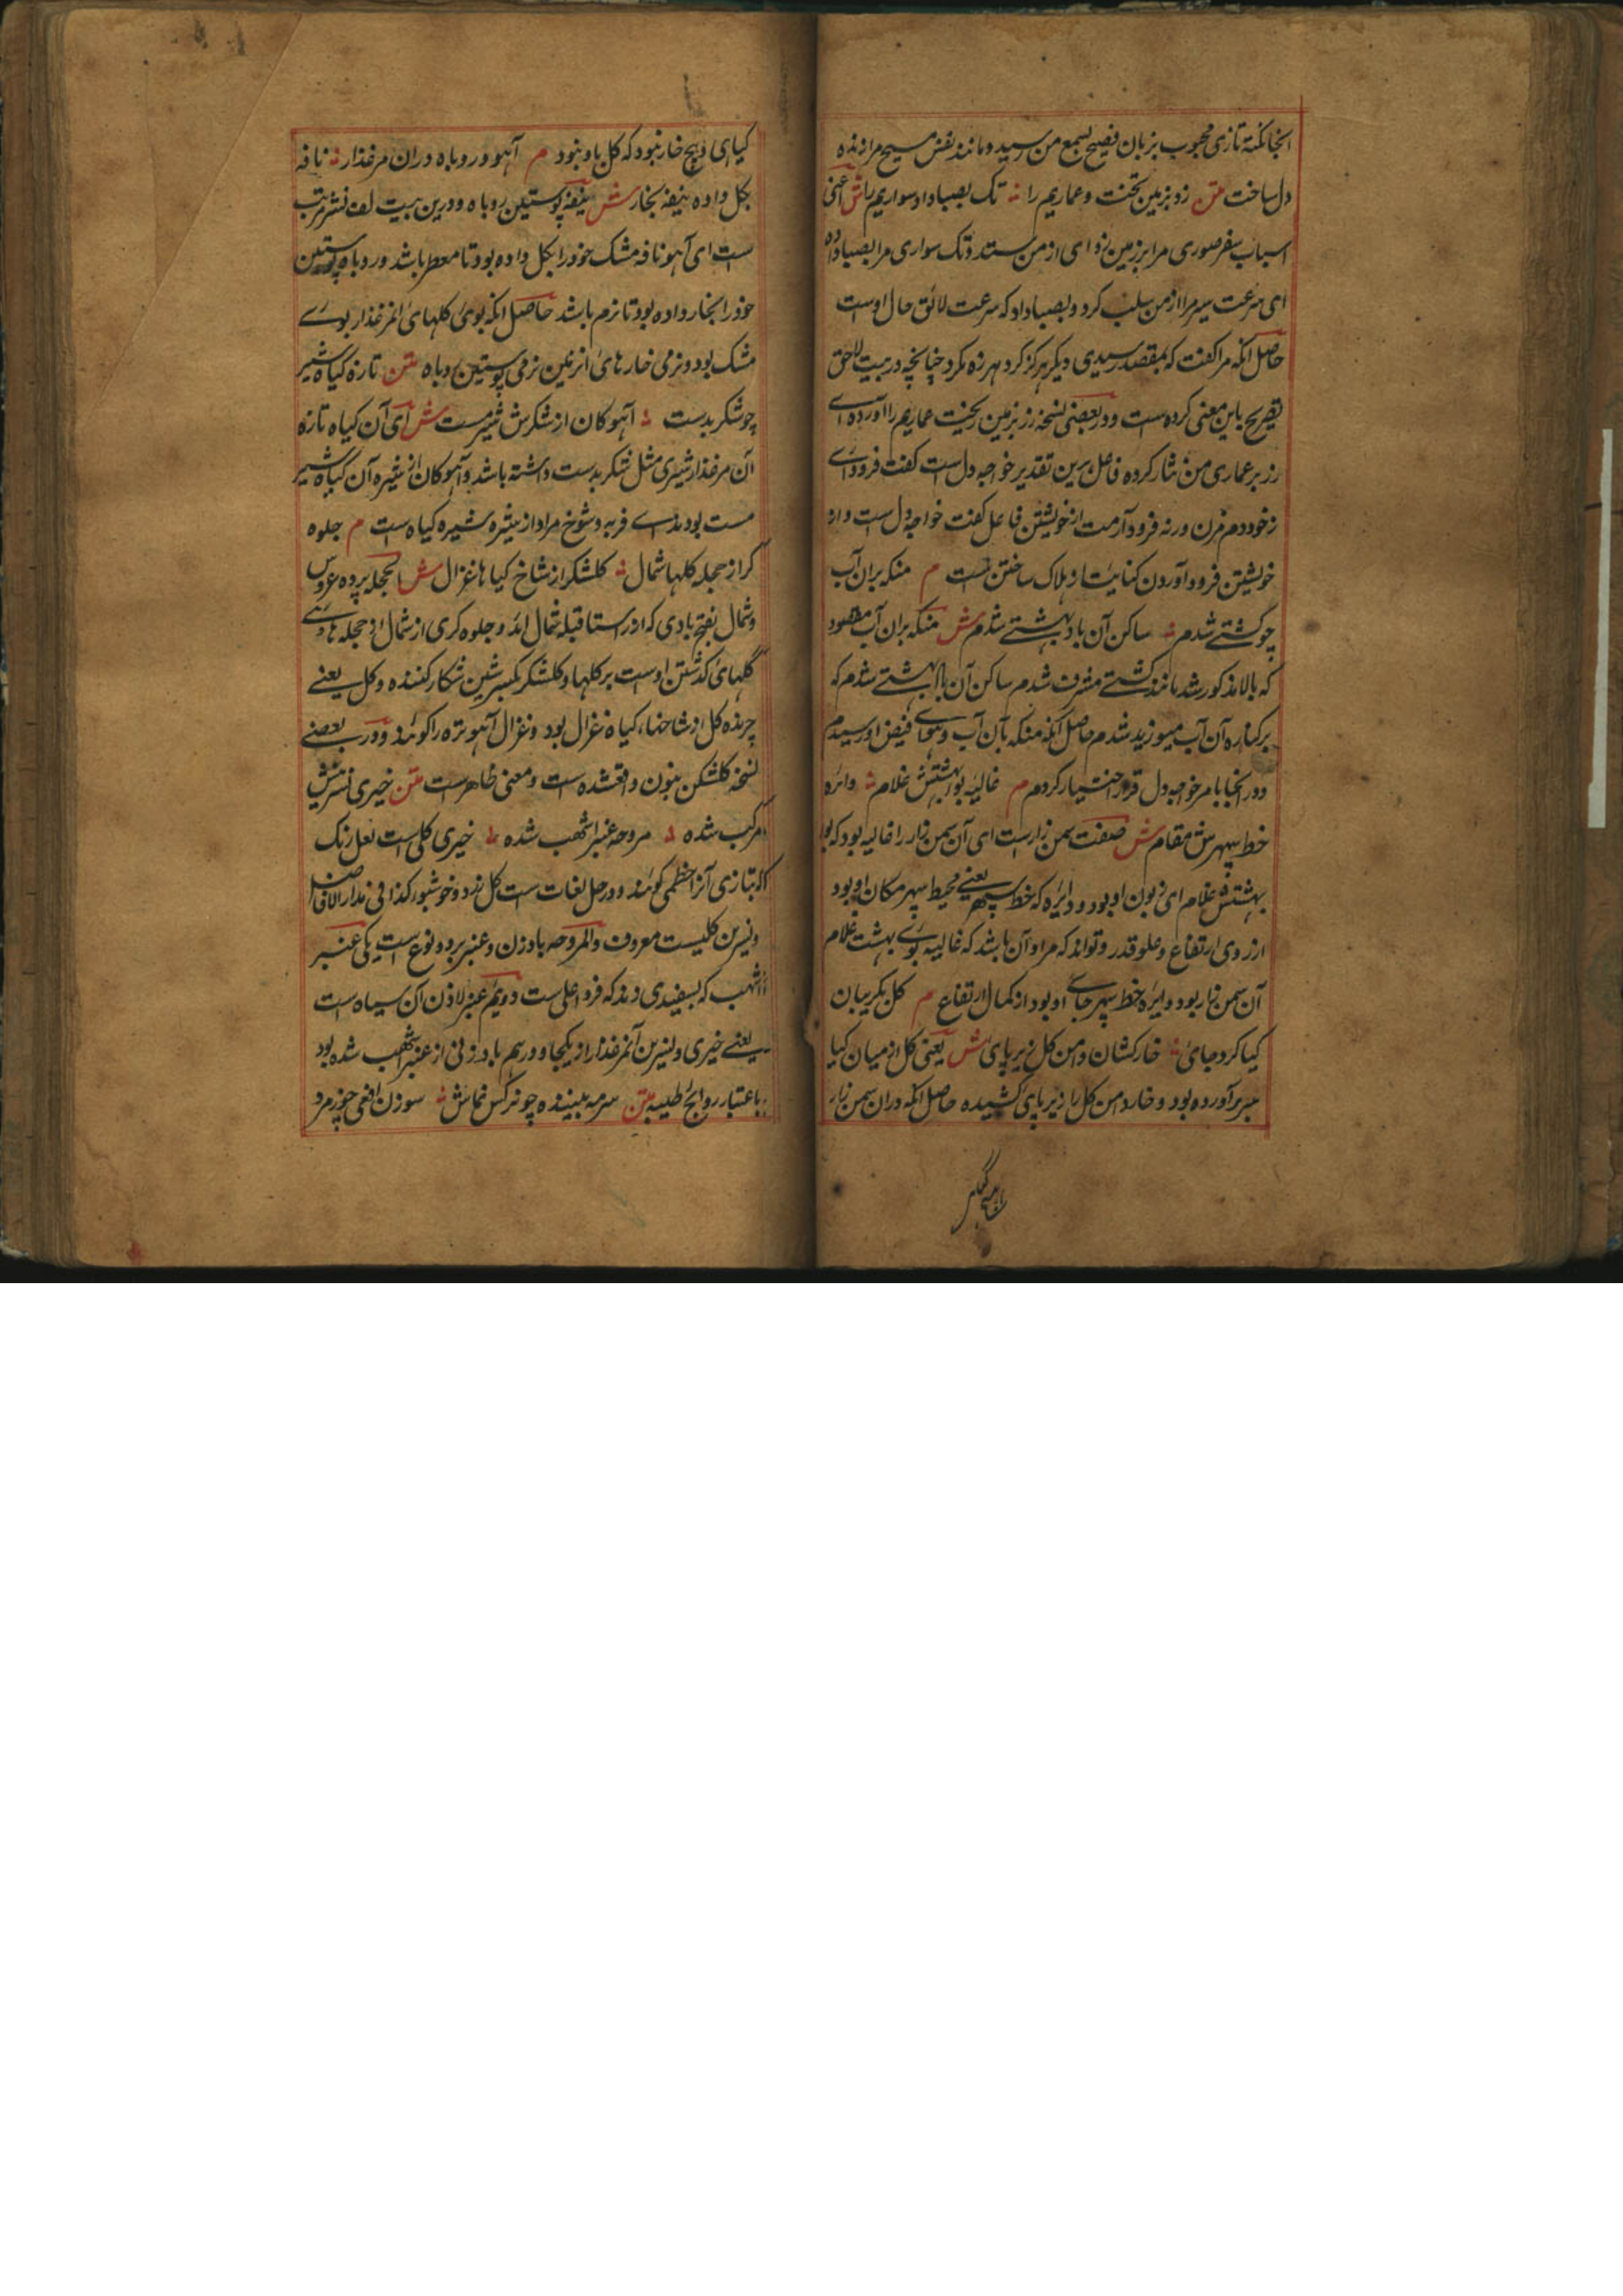 انجا نکته تازی محبوب بزبان فصیح بسمع من رسید و مانند نفس مسیح مرا زنده
دل ساخت متن زد بزمین تخت و عماریم را تک بصبا داد سواریم را ش اعنی
اسباب سفر صوری مرا بر زمین زد ای از من ستد و تک سواری مرا بصبا داده
ای سرعت سیر مرا از من سلب کرد و بصبا داد که سرعت لائق حال اوست
حاصل انکه مرا کفت که بمقصد رسیدی دیکر هرکز کرد هرزه مکرد چنانچه در بیت لاحق
تصریح باین معنی کرده است و در بعضی نسخه زر بزمین ریخت عماریم را آورده ای
زر بر عماری من نثار کرده فاعل برین تقدیر خواجه دل است کفت فرود آی
ز خود دم مزن ورنه فرود آرمت از خویشتن فاعل کفت خواجه دل است و از
خویشتن فرود آوردن کنایت از هلاک ساختن ست م منکه بران آب
چو کشتے شدم ساکن آن باد بهشتے شدم ش منکه بران آب مقصود
که بالا مذکور شد مانند کشتے مشرف شدم ساکن آن باد بهشتے شدم که
بر کناره آن آب میوزید شدم حاصل آنکه منکه بآن آب و هوای فیض او رسیدم
و در انجا بامر خواجه دل قرار اختیار کردم م غالیه بو بهشتش غلام دائره
خط سپهرش مقام ش صفت سمن زارست ای آن سمن زار را غالیه بود که بو
بهشتش غلام ای زبون او بود و دایره که خط سپهر یعنے محیط سپهر مکان او بود
از روی ارتفاع و علو قدر و تواند که مراد آن باشد که غالیه بوے بهشت غلام
آن سمن زار بود و دایره خط سپهر جاے او بود از کمال ارتفاع م کل بکریبان
کیا کرد جای خار کشان دامن کل زیر پای ش یعنی کل از میان کیا
سر برآورده بود و خار دامن کل را زیر پای کشیده حاصل انکه دران سمن زار
کیاهی و هیچ خار نبود که کل باو نبود م آهو و روباه دران مرغذار نافه
بکل داده نیفه بخار ش نیفه پوستین روباه و درین بیت لف نشر مرتب
ست ای آهو نافه مشک خود را بکل داده بود تا معطر باشد و روباه پوستین
خود را بخار داده بود تا نرم باشد حاصل انکه بوی کلهای انمرغذار بوے
مشک بود و نرمی خارهای انزمین نرمی پوستین روباه متن تازه کیاه شیر
چو شکر بدست آهوکان از شکرش شیر مست ش ای آن کیاه تازه
آن مرغذار شیری مثل شکر بدست داشته باشد و آهوکان از شیره آن کیاه شیر
مست بودند اے فربه و شوخ مراد از شیره شیره کیاه ست م جلوه
کر از حجله کلها شمال کلشکر از شاخ کیاها غزال ش الحجله پرده عروس
و شمال بفتح بادی که از راستا قبله شمال اند و جلوه کری از شمال از حجله هاے
کلهای کذشتن اوست بر کلها و کلشکر بکسر شین شکار کننده و کل یعنے
چرنده کل از شاخهاے کیاه غزال بود و غزال آهو بره را کویند و در بعضے
نسخه کلشکن بنون واقعشده ست و معنی ظاهرست متن خیری نسرینش
مرکب شده مروحه عنبر اشهب شده خیری کلی است لعل رنک
که بتازی آنرا خطمی کویند و در حل لغات ست کل زرد و خوشبو کذا فی مدار الافاضل
و نسرین کلیست معروف و المروحه بادزن و عنبر بر دو نوع است یکی عنبر
اشهب که بسفیدی زند که فرد اعلی ست دویم عنبر لاذن آن سیاه ست
یعنے خیری و نسرین آنمرغذار از یکجا و درهم باد زنی از عنبر اشهب شده بود
باعتبار روایح طیبه متن سرمه بیننده چو نرکس نماش سوزن افعی چو زمرد